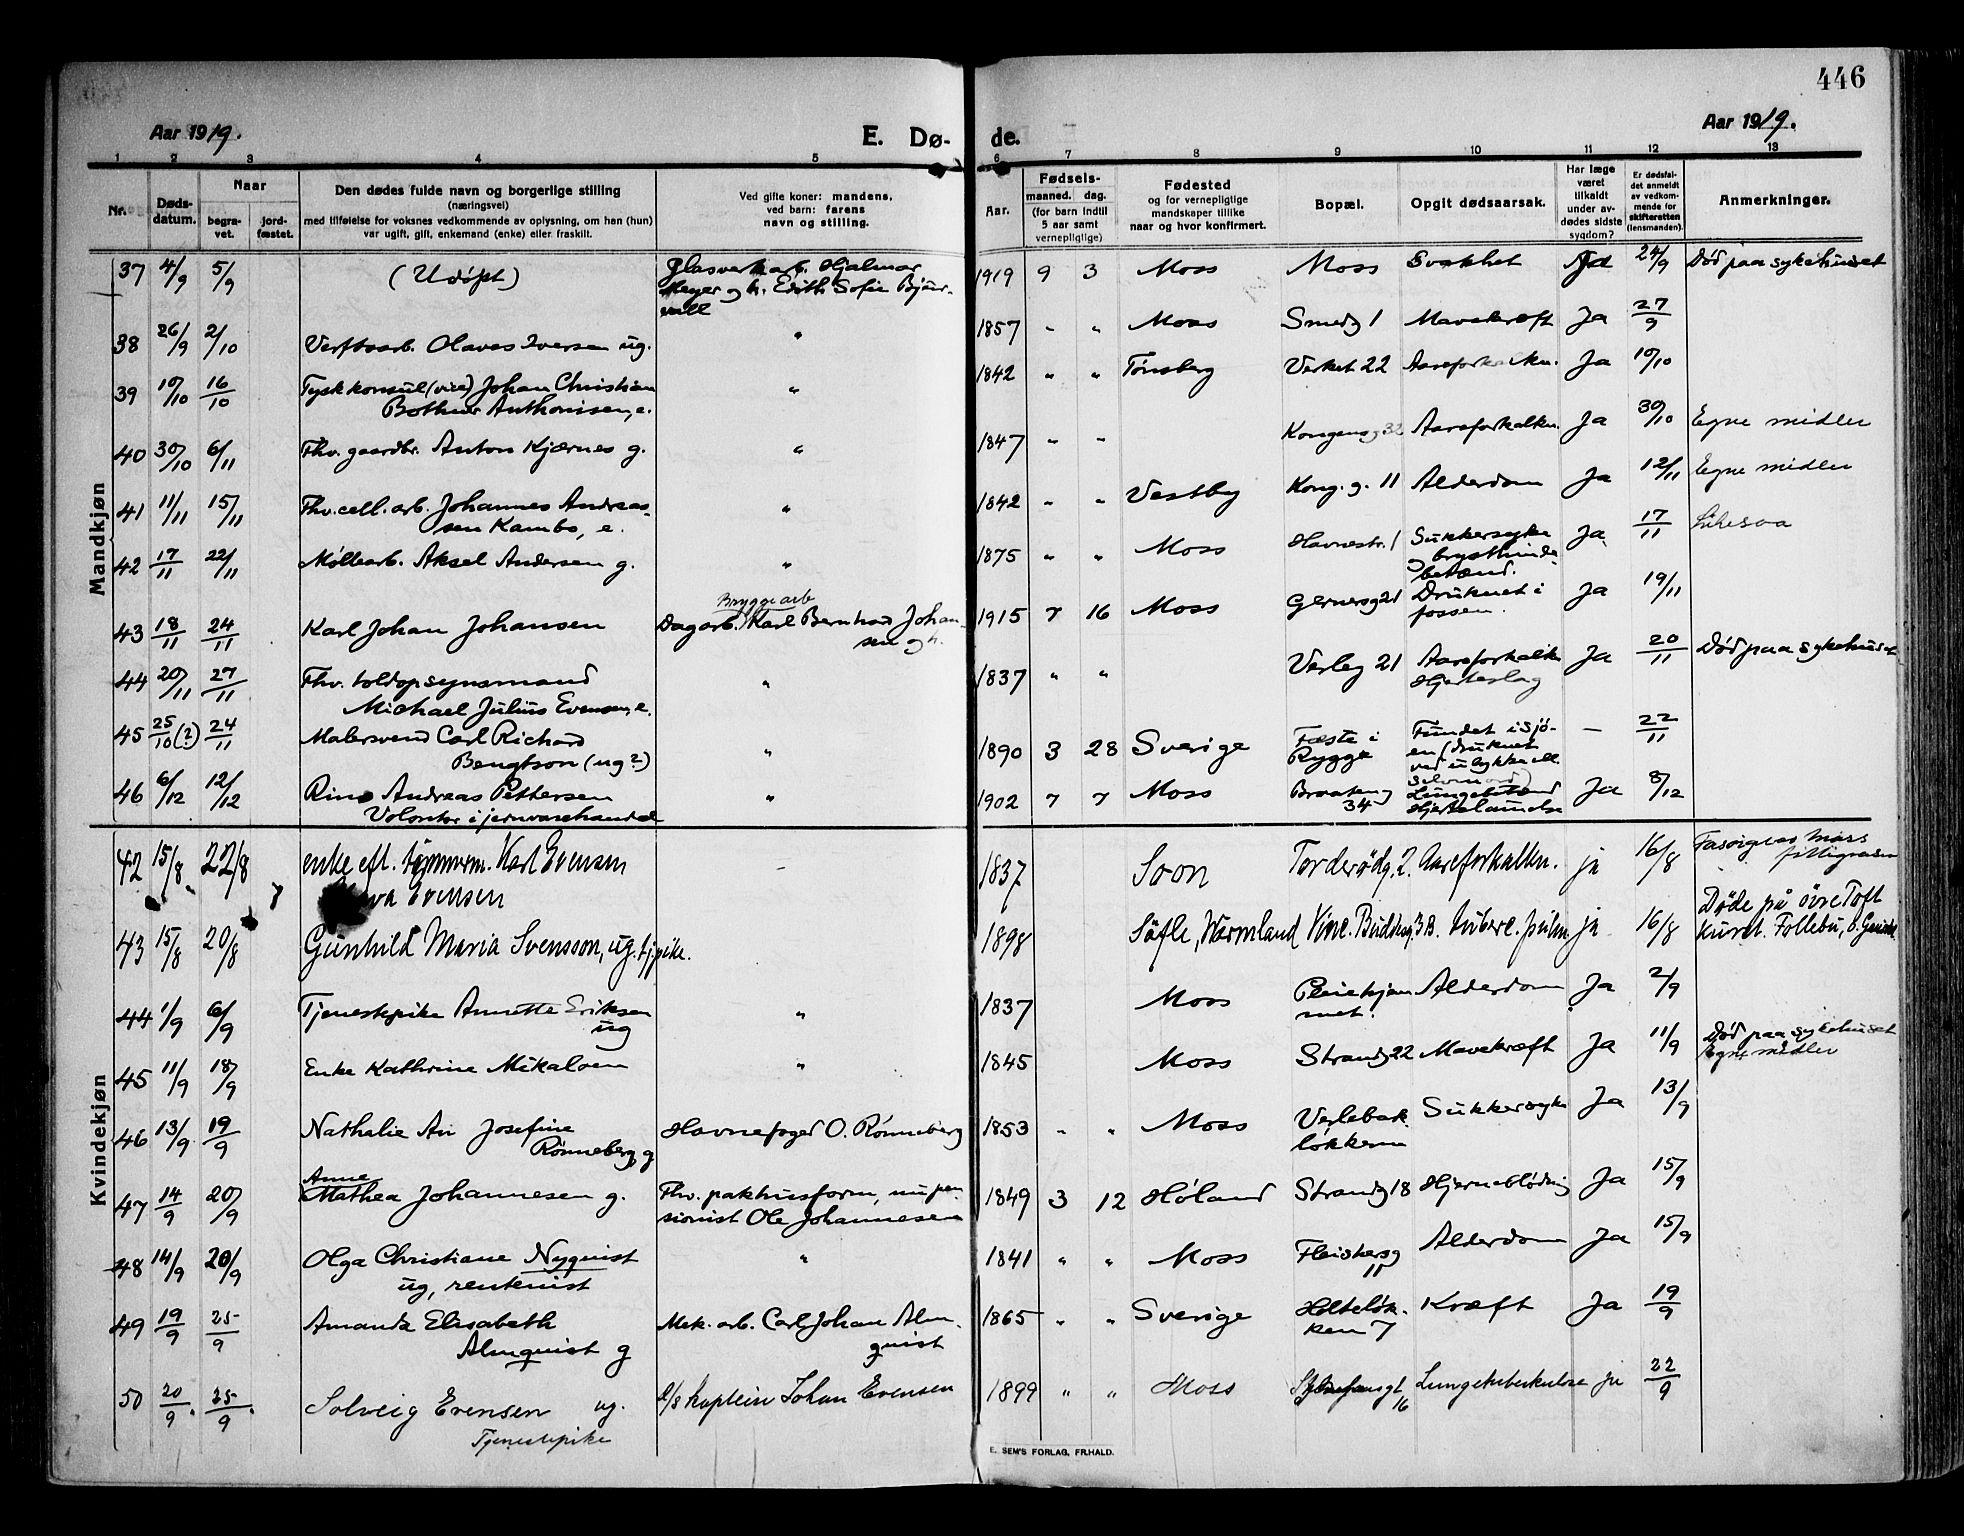 446
Aar 1919.
E. Dø-
de.
Aar 1919.
1 2 3 4 5 6 7 8 9 10 11 12 13
Nr.
Døds-
datum.
Naar
begra-
vet.
jord-
fæstet.
Den dødes fulde navn og borgerlige stilling
(næringsvei)
med tilføielse for voksnes vedkommende av oplysning, om han (hun)
var ugift, gift, enkemand (enke) eller fraskilt.
Ved gifte koner: mandens,
ved barn: farens
navn og stilling.
Aar.
Fødsels-
maaned. dag.
(for barn indtil
5 aar samt
vernepligtige)
Fødested
og for vernepligtige
mandskaper tillike
naar og hvor konfirmert.
Bopæl.
Opgit dødsaarsak.
Har læge
været
tilkaldt
under av-
dødes sidste
sygdom?
Er dødsfal-
det anmeldt
av vedkom-
mende for
skifteretten
(lensmanden).
Anmerkninger.
Mandkjøn
37 4/9 5/9 (Udøpt) Glasverkarb. Hjalmar 1919 9 3 Moss Moss Svakhet Ja 24/9 Død paa sykehuset
Meyer og h. Edith Sofie Bjur-
vall
38 26/9 2/10 Verftsarb. Olaves Iversen ug. " 1857 " " Moss Smedg 1 Mavekræft Ja 27/9
39 10/10 16/10 Tysk konsul (vice) Johan Christian " 1842 " " Tønsberg Verket 22 Aareforkalkn. Ja 10/10
Bothner Anthonisen, e.
40 30/10 6/11 Fhv. gaardbr. Anton Kjærnes g. " 1847 " " Kongensg 32 Aareforkalkn. Ja 30/10 Egne midler
41 11/11 15/11 Fhv. cell. arb. Johannes Andreas- " 1842 " " Vestby Kong. g. 11 Alderdom Ja 12/11 Egne midler
sen Kambo, e.
42 17/11 22/11 Møllearb. Aksel Andersen g. " 1875 " " Moss Havnestr. 1 Sukkersyke Ja 17/11 Likesaa
og brysthinde
betænd.
43 18/11 24/11 Karl Johan Johansen Bryggearb
Dagarb. Karl Bernhard Johan- 1915 7 16 Moss Gernersg 21 Druknet i Ja 19/11
sen og h. fossen.
44 20/11 27/11 Fhv. toldopsynsmand " 1837 " " Verleg 21 Aareforkalk Ja 20/11 Død paa sykehuset
Michael Julius Evensen, e. Hjerteslag
45 25/10 (?) 24/11 Malersvend Carl Richard " 1890 3 28 Sverige Feste i Fundet i sjø- — 22/11
Bengtson (ug?) Rygge en (druknet
ved ulykke ell.
selvmord)
46 6/12 12/12 Andreas Pettersen " 1902 7 7 Moss Braateng Lungebetænd Ja 8/12
Volontør i jernvarehandel 34 Hjertelammelse
Kvindekjøn
42 15/8 22/8 enke eft. tømmerm. Karl Evensen – 1837 Soon Torderødg. 2. Aareforkalkn. ja 16/8
Evensen
43 15/8 20/8 Gunhild Maria Svensson, ug. tj.pike. 1898 Säfle, Wärmland Vinc. Buddesg. 3B. tuberc. pulm ja 16/8 Døde på øvre Toft
kurst. Follebu, ö.
44 1/9 6/9 Tjenestepike Annette Eriksen " 1837 Moss Pleiehjem Alderdom Ja 2/9
ug met.
45 11/9 18/9 Enke Kathrine Mikalsen " 1845 Moss Strandg 22 Mavekræft Ja 11/9 Død paa sykehuset
Egne midler
46 13/9 19/9 Nathalie Josefine Havnefoged O. Rønneberg 1853 " " Moss Verlebak Sukkersyke Ja 13/9
Rønneberg, g løkken
47 14/9 20/9 Anne
Mathea Johannesen g. Fhv. pakhusform, nu pen- 1849 3 12 Høland Strandg 18 Hjerneblødnig Ja 15/9
sionist Ole Johannesen
48 14/9 20/9 Olga Christiane Nyquist " 1841 " " Moss Fleischersg Alderdom Ja 15/9
ug, rentenist 11
49 19/9 25/9 Amanda Elisabeth Mek. arb. Carl Johan Alm- 1865 " " Sverige Holteløk- Kræft Ja 19/9
Almquist g quist ken 7
50 20/9 25/9 Solveig Evensen ug. d/s kaptein Johan Evensen 1899 " " Moss 16 Lungetuberkulose ja 22/9
Tjenestepike
E. SEM'S FORLAG, FR.HALD.